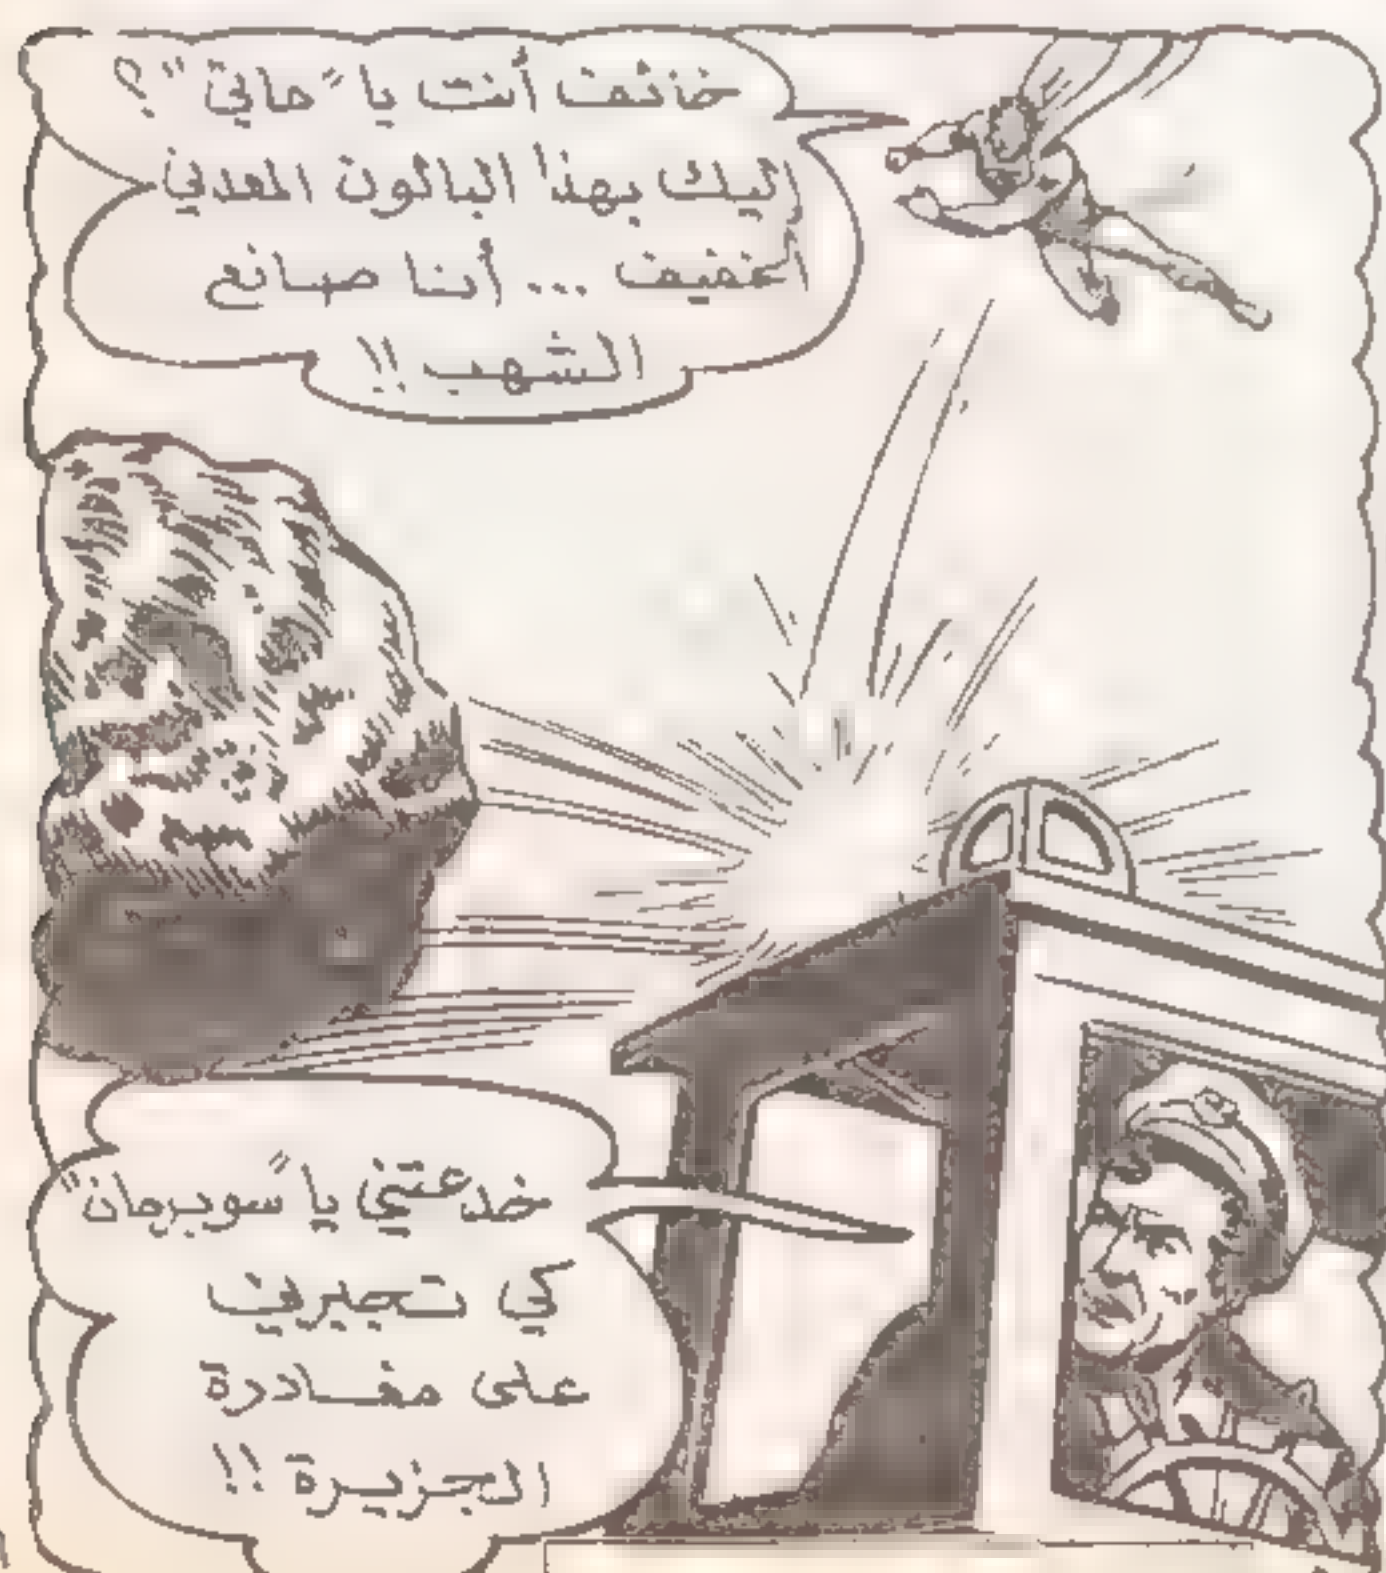 خائف أنت يا "هاني"؟
إليك بهذا البالون المعدني
الخفيف ... أنا صانع
الشهب !!
خدعتني يا "سوبرمان"
كي تجبرني
على مغادرة
الجزيرة !!